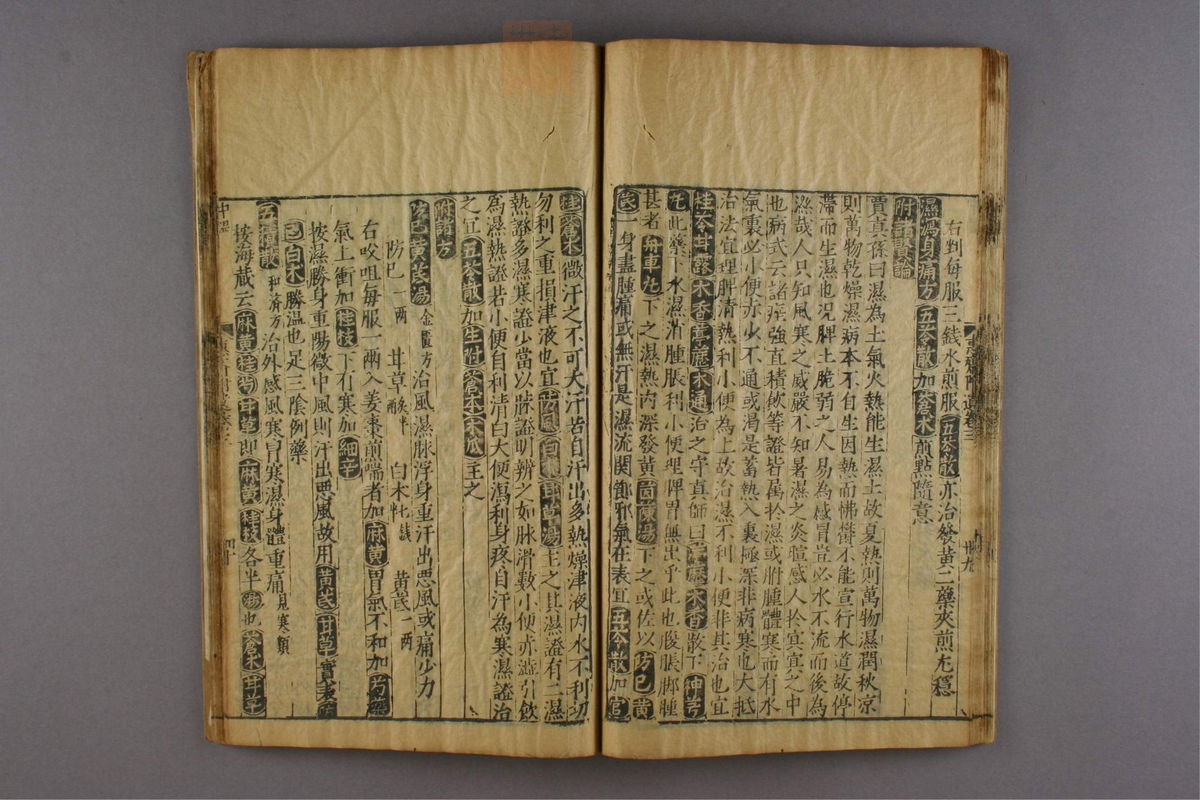 右剉每服三錢水煎服五苓散亦治發黃二藥夾煎尤穩
濕為身痛方五苓散加蒼木煎點隨意
附 論
賈真孫曰濕為土氣火熱能生濕土故夏熱則萬物濕潤秋凉
則萬物乾燥濕病本不自生因熱而怫鬱不能宣行水道故停
滯而生濕也況脾土脆弱之人易為感冒豈必水不流而後為
濕哉人只知風寒之威嚴不知暑濕之炎暄感人於冥冥之中
也病式云諸痙強直積飲等證皆屬於濕或胕腫體寒而有水
氣裏必小便赤少不通或渴是蓄熱入裏極深非病寒也大抵
治法宜理脾清熱利小便為上故治濕不利小便非其治也宜
桂苓甘露木香葶藶木通治之守真師曰葶藶木香散下神芎
丸此藥下水濕消腫脹利小便理脾胃無出乎此也腹脹脚腫
甚者舟車丸下之濕熱內深發黃茵蔯湯下之或佐以防已黃
芪一身盡腫痛或無汗是濕流関節邪氣在表宜五苓散加官
桂蒼木微汗之不可大汗若自汗出多熱燥津液內水不利切
勿利之重損津液也宜防風白木甘草湯主之其濕證有二濕
熱證多濕寒證少當以脉證明辨之如脉滑數小便赤澁引飲
為濕熱證若小便自利清白大便瀉利身疼自汗為寒濕證治
之宜五苓散加生附蒼木木瓜主之
附諸方
防已黃芪湯金匱方治風濕脉浮身重汗出惡風或痛少力
防已一兩 甘草炙半 白木七錢半 黃芪一兩
右㕮咀每服一兩入姜棗煎喘者加麻黃胃氣不和加芍藥
氣上衝加桂枝下有寒加細辛
按濕勝身重陽微中風則汗出惡風故用黃芪甘草實表防
已白木勝濕也足三陰例藥
五積散和済方治外感風寒冒寒濕身體重痛見寒類
按海蔵云麻黃桂芍甘草即麻黃桂枝各半湯也蒼木甘草